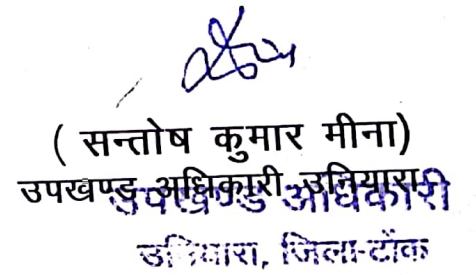 ( सन्तोष कुमार मीना)
उपखण्ड अधिकारी उनियारा
उपखण्ड अधिकारी
उनियारा, जिला-टोंक